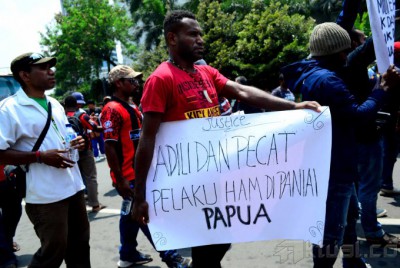 Justice
ADILI DAN PECAT
PELAKU HAM DI PANIAI
PAPUA